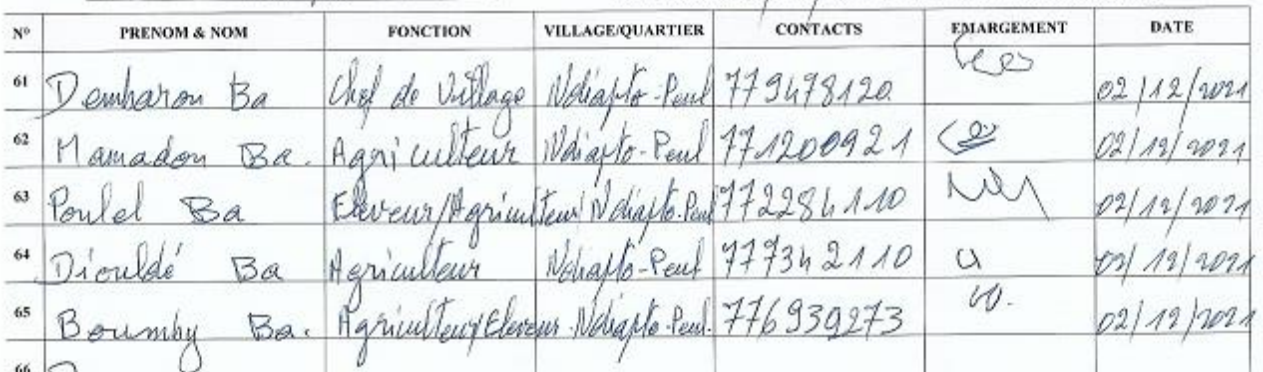 N° PRENOM & NOM FONCTION VILLAGE/QUARTIER CONTACTS EMARGEMENT DATE
61 Demharou Ba Chef de Village Ndiapto-Peul 779478120 02/12/2021
62 Mamadou Ba. Agriculteur Ndiapto-Peul 771200921 02/12/2021
63 Poulel Ba Eleveur/Agriculteur Ndiapto-Peul 772284110 02/12/2021
64 Diouldé Ba Agriculteur Ndiapto-Peul 777342110 02/12/2021
65 Boumby Ba. Agriculteur/Eleveur Ndiapto-Peul. 776939273 02/12/2021
66